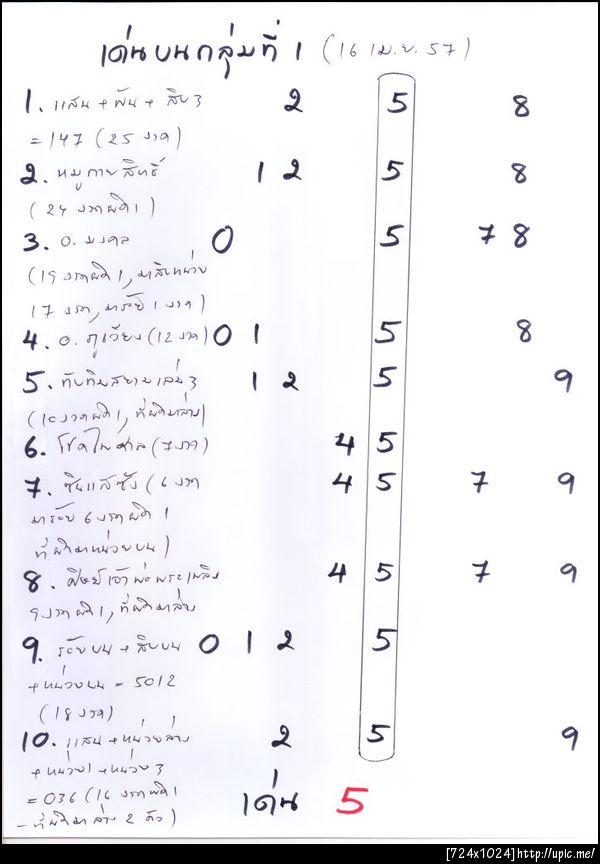 เด่นบนกลุ่มที่ 1 (16 เม.ย. 57)
1. แสน + พัน + สิบ 3 2 5 8
= 147 (25 งวด)
2. หมูกายสิทธิ์ 1 2 5 8
(24 งวดผิด 1)
3. อ. มงคล 0 5 7 8
(19 งวดผิด 1, มาสิบหน่วย
17 งวด, มาร้อย 1 งวด)
4. อ. ภูเวียง (12 งวด) 0 1 5 8
5. ทับทิมสยามเล่ม 3 1 2 5 9
(10 งวดผิด 1, ที่ผิดมาล่าง)
6. โชคไพศาล (7 งวด) 4 5
7. ซินแสซัง (6 งวด 4 5 7 9
มาร้อย 6 งวดผิด 1
ที่ผิดมาหน่วยบน)
8. ศิษย์เจ้าพ่อพระเพลิง 4 5 7 9
9 งวดผิด 1, ที่ผิดมาล่าง
9. ร้อยบน + สิบบน 0 1 2 5
+ หน่วยบน = 5012
(18 งวด)
10. แสน + หน่วยล่าง 2 5 9
+ หน่วย 1 + หน่วย 3
= 036 (16 งวดผิด 1
- ที่ผิดมาล่าง 2 ตัว)
เด่น 5
[724x1024]http://upic.me/